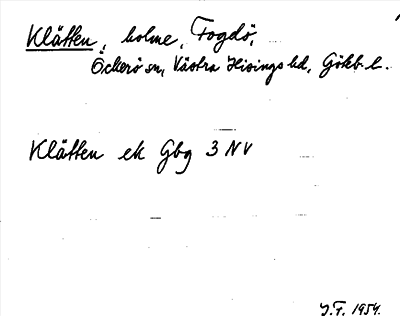 Klätten, holme, Fogdö,
Öckerö sn, Västra Hisings hd, Göteb. l.
Klätten ek Gbg 3 NV
J.F. 1954.